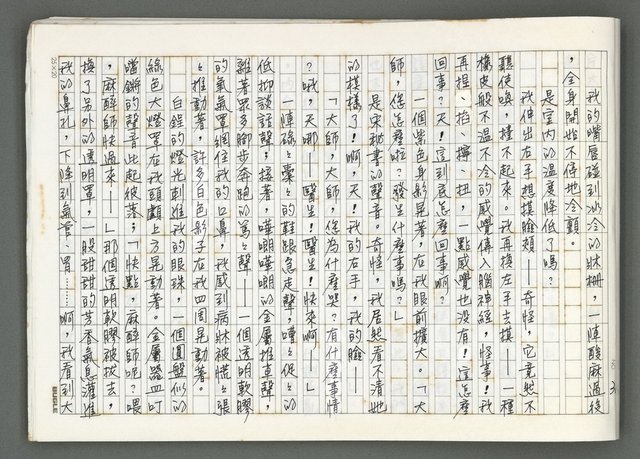 我的嘴唇碰到冰冷的床柵,一陣酸麻過後
,全身開始不停地冷顫。
是室內的溫度降低了嗎?
我伸出右手想摸臉頰——奇怪,它竟然不
聽使喚,擡不起來。我再換左手去摸——一種
橡皮般不溫不冷的感覺傳入腦神經。怪事!我
再捏、掐、擰、扭,一點感覺也沒有!這怎麼
回事?天!這到底怎麼回事啊?
一個紫色身影晃著,在我眼前擴大。「大
師,您怎麼啦?發生什麼事嗎?」
是宋秘書的聲音。奇怪,我居然看不清她
的模樣了!啊,天!我的右手,我的臉——
「大師,大師,您為什麼哭?有什麼事情
?哦,天哪——醫生!醫生!快來啊——」
一陣碌碌橐橐的鞋跟急走聲,嘈嘈促促的
低抑談話聲;接著,嘩啷嘩啷的金屬推車聲,
雜著眾多腳步奔跑的篤篤聲——一個透明軟膠
的氧氣罩網住我的口鼻,我感到病牀被慌慌張
張推動著,許多白色影子在我四周晃動著。
白鋥的燈光刺進我的眼珠,一個圓盤似的
綠色大燈罩在我頭顱上方晃動著。金屬器皿叮
噹鏘的聲音此起彼落;「快點,麻醉師呢?喂
,麻醉師快過來——」那個透明軟膠被拔去,
換了另外的透明罩,一股甜甜的芳香氣息灌進
我的鼻孔,下降到氣管、胃……啊,我看到大
25×20
3